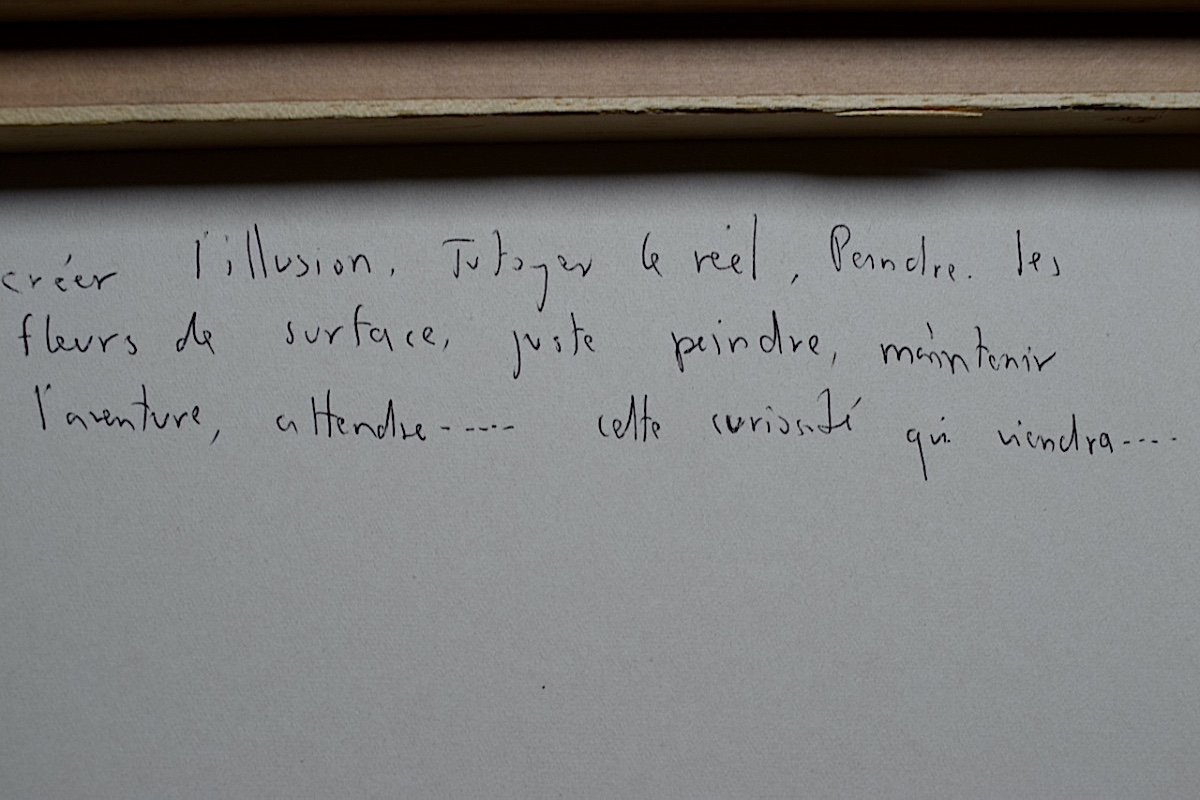 créer l'illusion. Tutoyer le réel, Peindre. les
fleurs de surface, juste peindre, maintenir
l'aventure, attendre----- cette curiosité qui viendra----